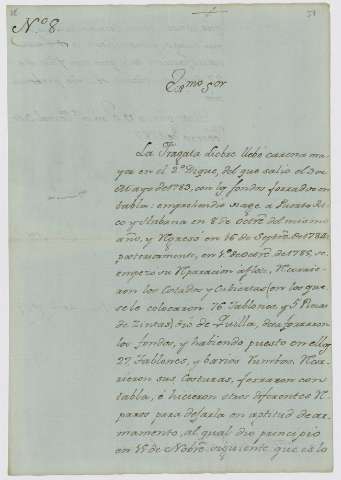 Nº 8.
51
Exmo Sor
La Fragata Liebre llebó carena ma
yor en el 2º Dique, del que salió el 3 de
Mayo de 1783, con los fondos forrados en
tabla: emprehendió viage a Puerto Ri
co y Habana en 8 de Octre del mismo
año, y regresó en 16 de Septre de 1784:
posteriormente, en 1º de Octre de 1785, se
empezó su reparacion aflote, recorrie
ron los Costados y Cubiertas (en los que
se le colocaron 76 Tablones, y 5 Piezas
de Zintas) dió de Quilla, desaforraron
los fondos, y habiendo puesto en ellos
27 Tablones, y barios rumbos, recor
rieron sus costuras, forraron con
tabla, é hicieron otros diferentes re
paros para dejarla en aptitud de ar
mamento, al qual dió principio
en 1º de Nobre siguiente, que es lo